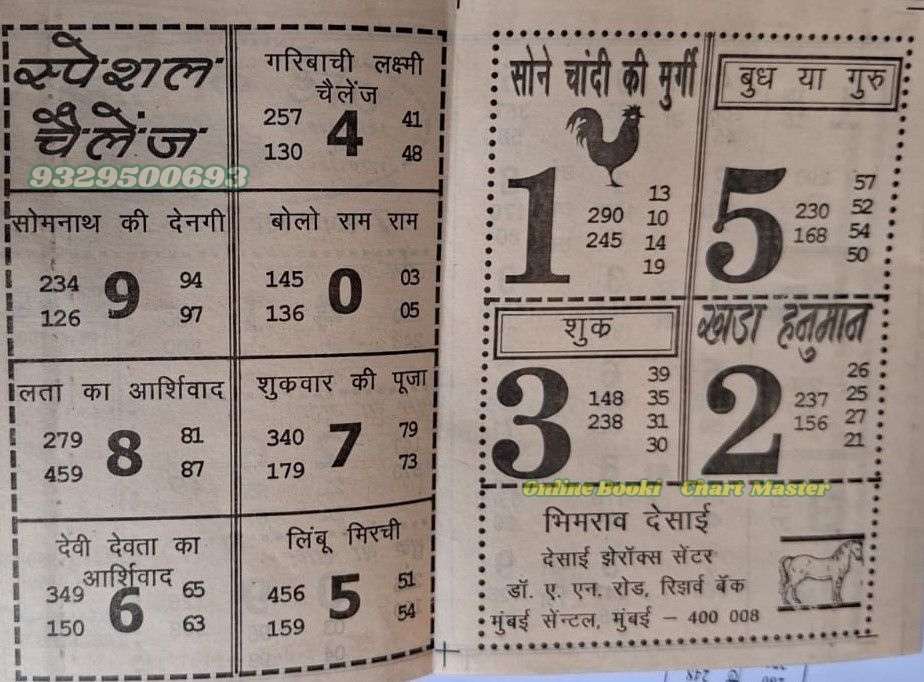 स्पेशल
चैलेंज
9329500693
गरिबाची लक्ष्मी
चैलेंज
257 4 41
130 48
सोमनाथ की देनगी
234 9 94
126 97
बोलो राम राम
145 0 03
136 05
लता का आर्शिवाद
279 8 81
459 87
शुकवार की पूजा
340 7 79
179 73
देवी देवता का
आर्शिवाद
349 6 65
150 63
लिंबू मिरची
456 5 51
159 54
सोने चांदी की मुर्गी
1
290
245
13
10
14
19
बुध या गुरु
5
230
168
57
52
54
50
शुक
3
148
238
39
35
31
30
खडा हनुमान
2
237
156
26
25
27
21
Online Booki Chart Master
भिमराव देसाई
देसाई झेरॉक्स सेंटर
डॉ. ए. एन. रोड, रिझर्व बँक
मुंबई सेंन्टल, मुंबई – 400 008